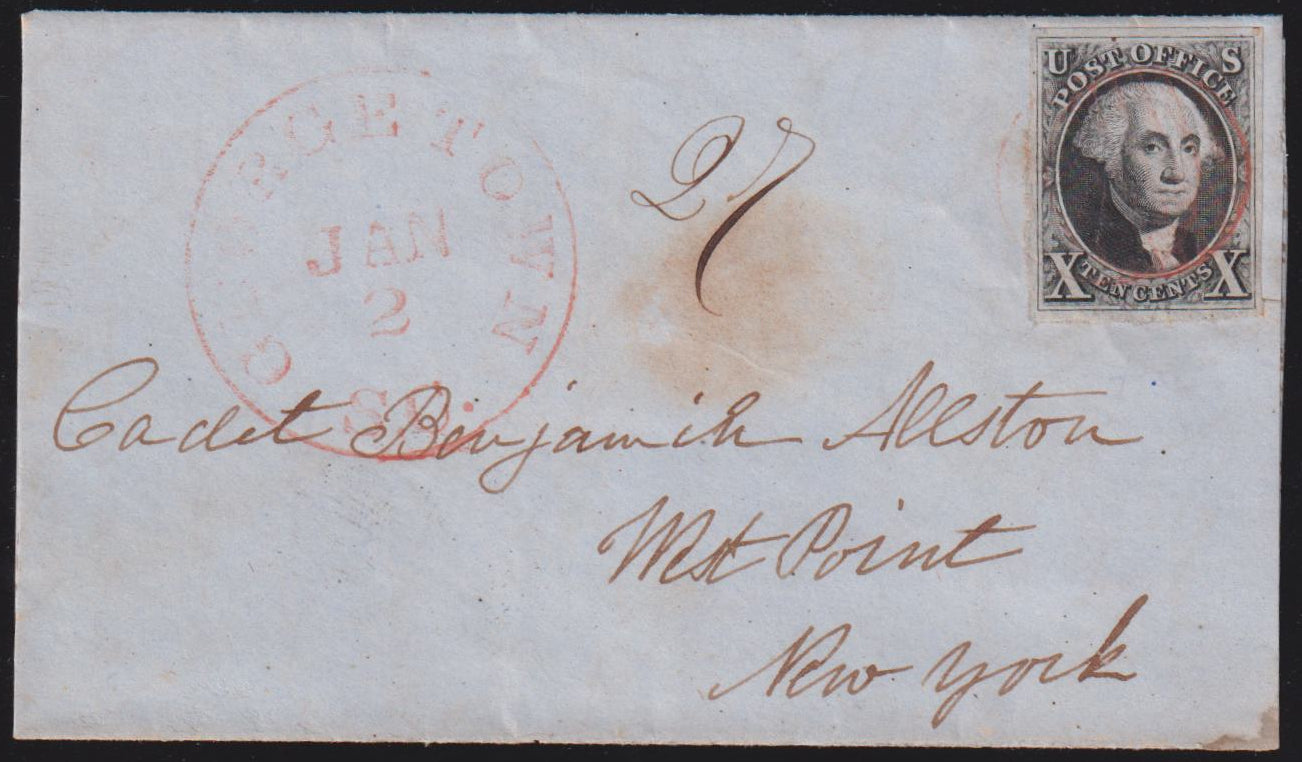 GEORGETOWN
JAN
2
S.C.
27
U S
POST OFFICE
X TEN CENTS X
Cadet Benjamin Allston
West Point
New York